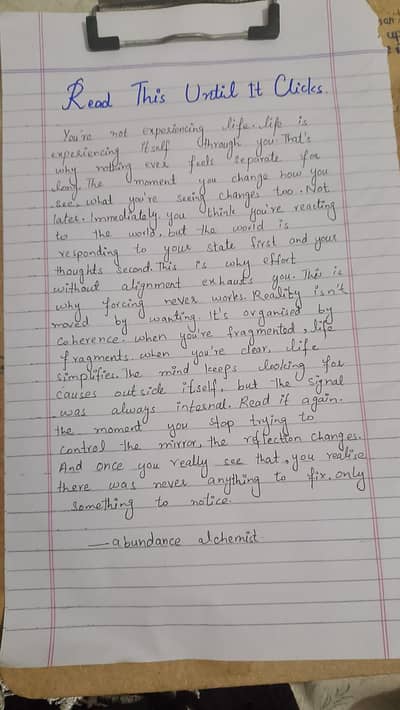 Read This Until It Clicks.
You're not experiencing life. life is
experiencing itself through you. That's
why nothing ever feels separate for
long. The moment you change how you
see, what you're seeing changes too. Not
later. Immediately. you think you're reacting
to the world, but the world is
responding to your state first and your
thoughts second. This is why effort
without alignment exhausts you. This is
why forcing never works. Reality isn't
moved by wanting. It's organised by
coherence. when you're fragmented, life
fragments. when you're clear, life
simplifies. The mind keeps looking for
causes outside itself, but the signal
was always internal. Read it again.
the moment you stop trying to
control the mirror, the reflection changes.
And once you really see that, you realise
there was never anything to fix. only
something to notice.
— abundance alchemist